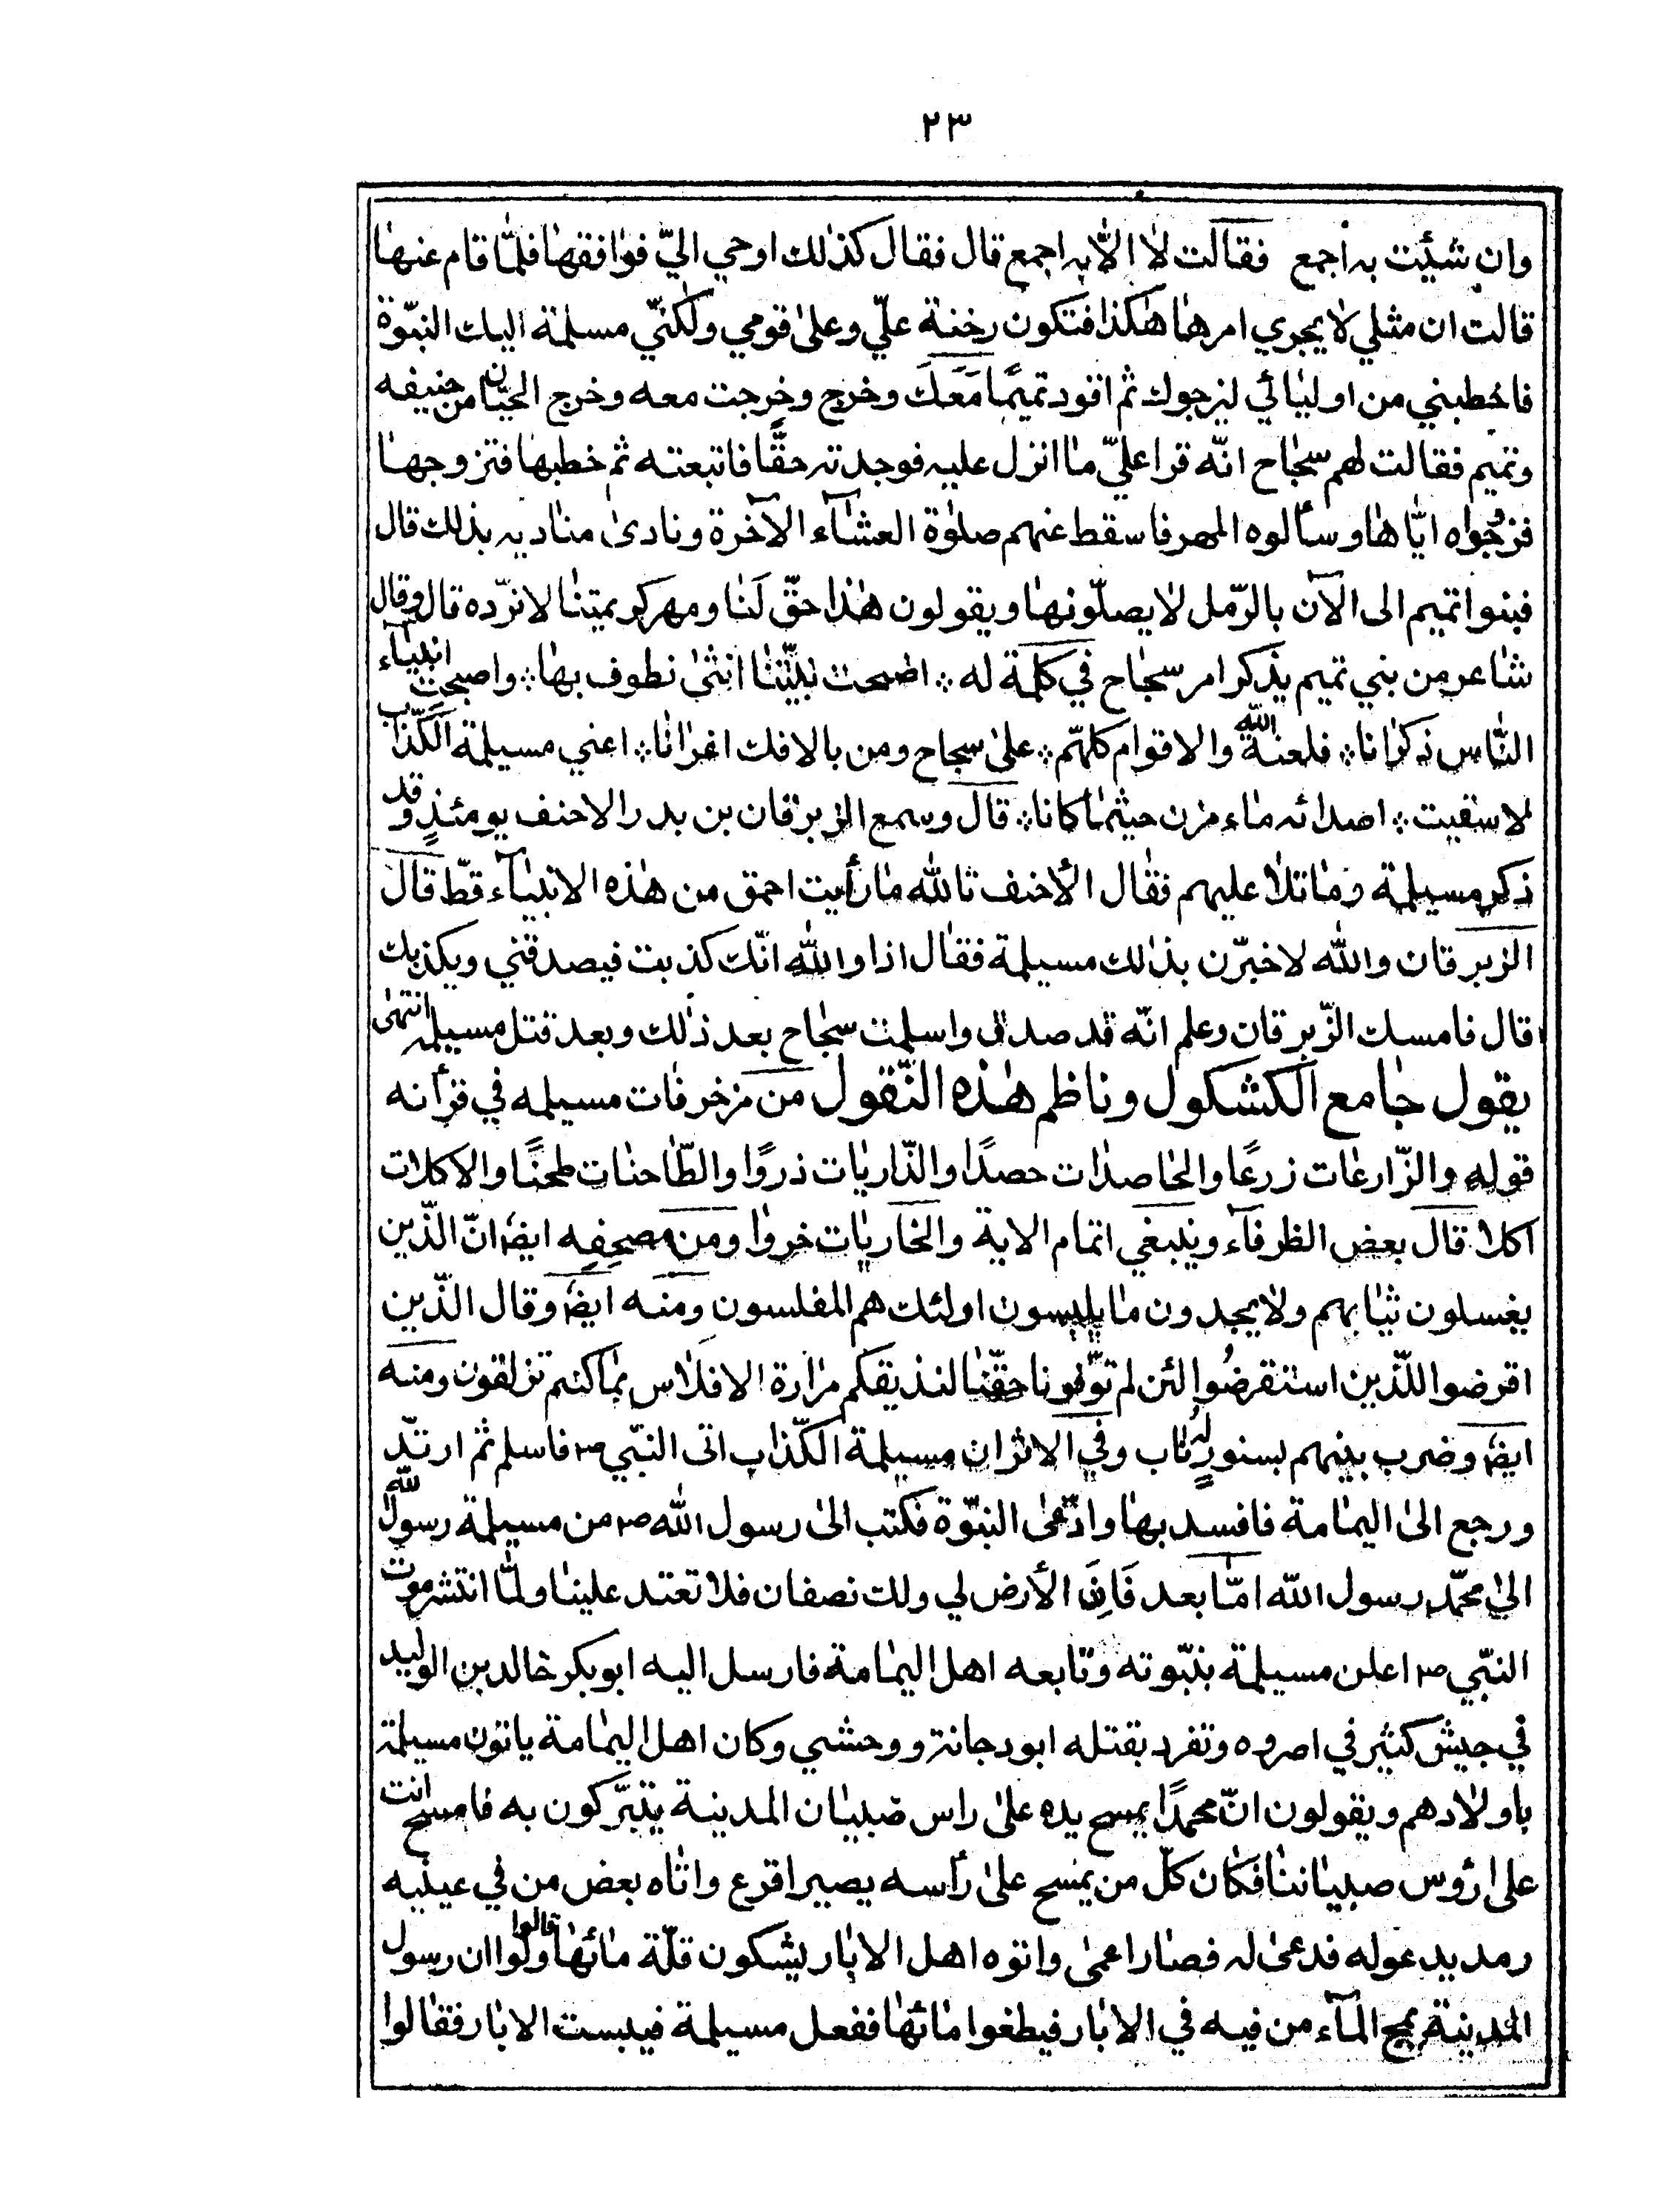 ٢٣
وان شئيت به اجمع فقالت لا الّا به اجمع قال فقال كذلك اوحي اليّ فوافقها فلمّا قام عنها
قالت ان مثلي لا يجري امرها هكذا فتكون رخنة عليّ وعلى قومي ولكنّي مسلمة اليك النبّوة
فاخطبني من اوليائي ليزجوك ثم اقود تميمًا مَعَكَ وخرج وخرجت معه وخرج الحيّان من حنيفه
وتميم فقالت لهم سجاح انّه قرا عليّ ما انزل عليه فوجدته حقًّا فاتبعته ثم خطبها فتزوجها
فزجُواه ايّاها وسألوه المهر فاسقط عنهم صلوة العشآء الآخرة ونادى مناديه بذلك قال
فبنوا تميم الى الآن بالرّمل لا يصلّونها ويقولون هذا حقّ لَنا ومهر كريمتنا لا نرّده قال وقال
شاعر من بني تميم يذكر امر سجاح في كلمة له ⁘ اضحت نبيّتنا انثى نطوف بها ⁘ واصبحت انبيآء
النّاس ذكرانا ⁘ فلعنة الله والاقوام كلهّم ⁘ على سجاح ومن بالافك اغرانا ⁘ اعني مسيلمة الكّذاب
لا سقيت ⁘ اصدائه ماء مزن حيثما كانا ⁘ قال وسمع الزبرقان بن بدر الاحنف يومئذٍ وقد
ذكر مسيلمة وما تلا عليهم فقال الأحنف تالله ما رأيت احمق من هذه الانبيآء قطّ قال
الزبرقان والله لاخبرّن بذلك مسيلمة فقال اذا والله انّك كذبت فيصدقني ويكذبك
قال فامسك الزّبرقان وعلم انّه قد صدق واسلمت سجاح بعد ذلك وبعد قتل مسيلمه انتهى
يقول جامع الكشكول وناظم هذه النّقول من مزخرفات مسيلمه في قرأنه
قوله والزّارعات زرعًا والحاصدات حصدًا والذّاريات ذروًا والطّاحنات طحنًا والاكلات
اكلا قال بعض الظرفآء وينبغي اتمام الاية والخاريات خروا ومن مصحِفِه ايضٗ انّ الذّين
يغسلون ثيابهم ولا يجدون ما يلبسون اولئك هم المفلسون ومنه ايضٗ وقال الذّين
اقرضوا اللّذين استقرضُوا لئن لم توّفونا حقّنا لنذيقكم مرارة الافلاس بما كنتم تزلقون ومنه
ايضٗ وضرب بينهم بسنورٍ له ناب وفي الاثر ان مسيلمة الكّذاب اتى النبّي ص فاسلم ثم ارتدّ
ورجع الى اليمامة فافسد بها وادّعى النبّوة فكتب الى رسول الله ص من مسيلمة رسول الله
الى محمّد رسول الله امّا بعد فَانَ الأرض لي ولك نصفان فلا تعتد علينا ولمّا انتشر موت
النبّي ص اعلن مسيلمة بنبّوته وتابعه اهل اليمامة فارسل اليه ابو بكر خالد بن الوليد
في جيش كثير في امروه وتفرد بقتله ابو دجانة ووحشي وكان اهل اليمامة ياتون مسيلمة
باولادهم ويقولون انّ محمدًا يمسح يده على راس صبيان المدينة يتبّركون به فامسح انت
على ارؤس صبياننا فكان كلّ من يمسح على رأسه يصير اقرع واتاه بعض من في عينيه
رمد يدعوله فدعى له فصار اعمى واتوه اهل الابار يشكون قلّة مائها وقالوا ان رسول
المدينة يمج المآء من فيه في الابار فيطغوا مائها ففعل مسيلمة فيبست الابار فقالوا